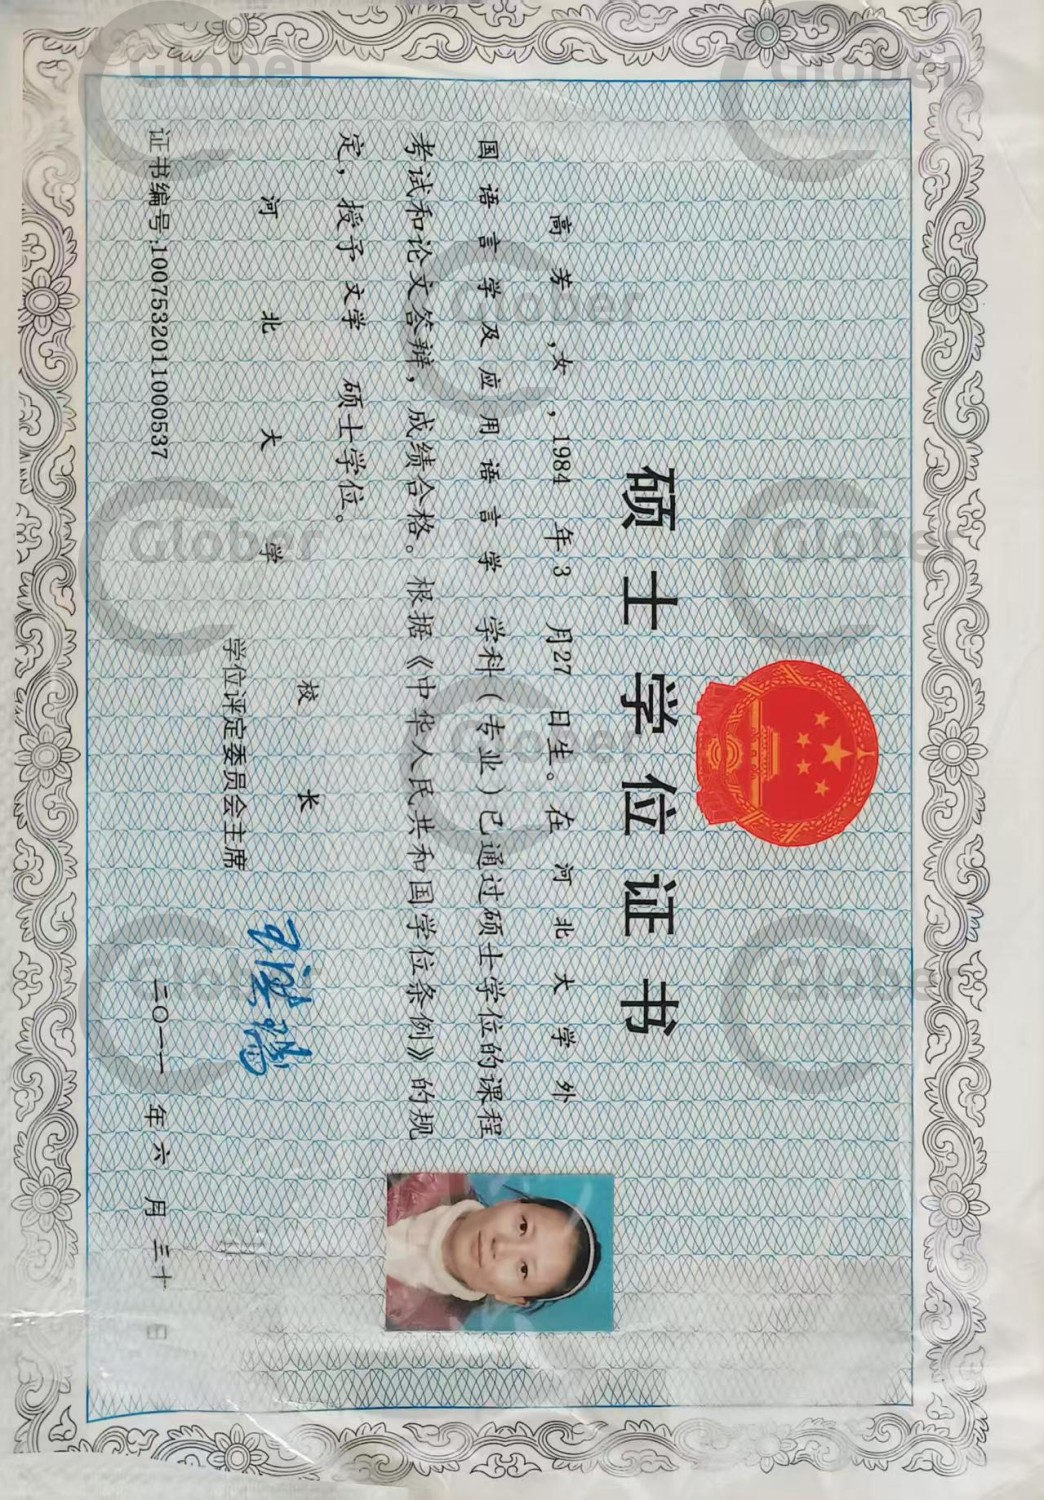 硕士学位证书
高芳,女,1984年3月27日生。在河北大学外
国语言学及应用语言学学科(专业)已通过硕士学位的课程
考试和论文答辩,成绩合格。根据《中华人民共和国学位条例》的规
定,授予文学硕士学位。
河北大学
校长
学位评定委员会主席
证书编号:1007532011000537
二〇一一年六月三十日
Glober
Glober
Glober
Glober
Glober
Glober
Glober
Glober